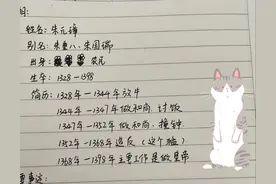 姓名：朱元璋
别名：朱重八、朱国瑞
出身：农民
生卒：1328－1398
简历：1328年－1344年放牛
1344年－1347年做和尚、讨饭
1347年－1352年做和尚、撞钟
1352年－1368年造反（这个猛）
1368年－1398年主要工作是做皇帝